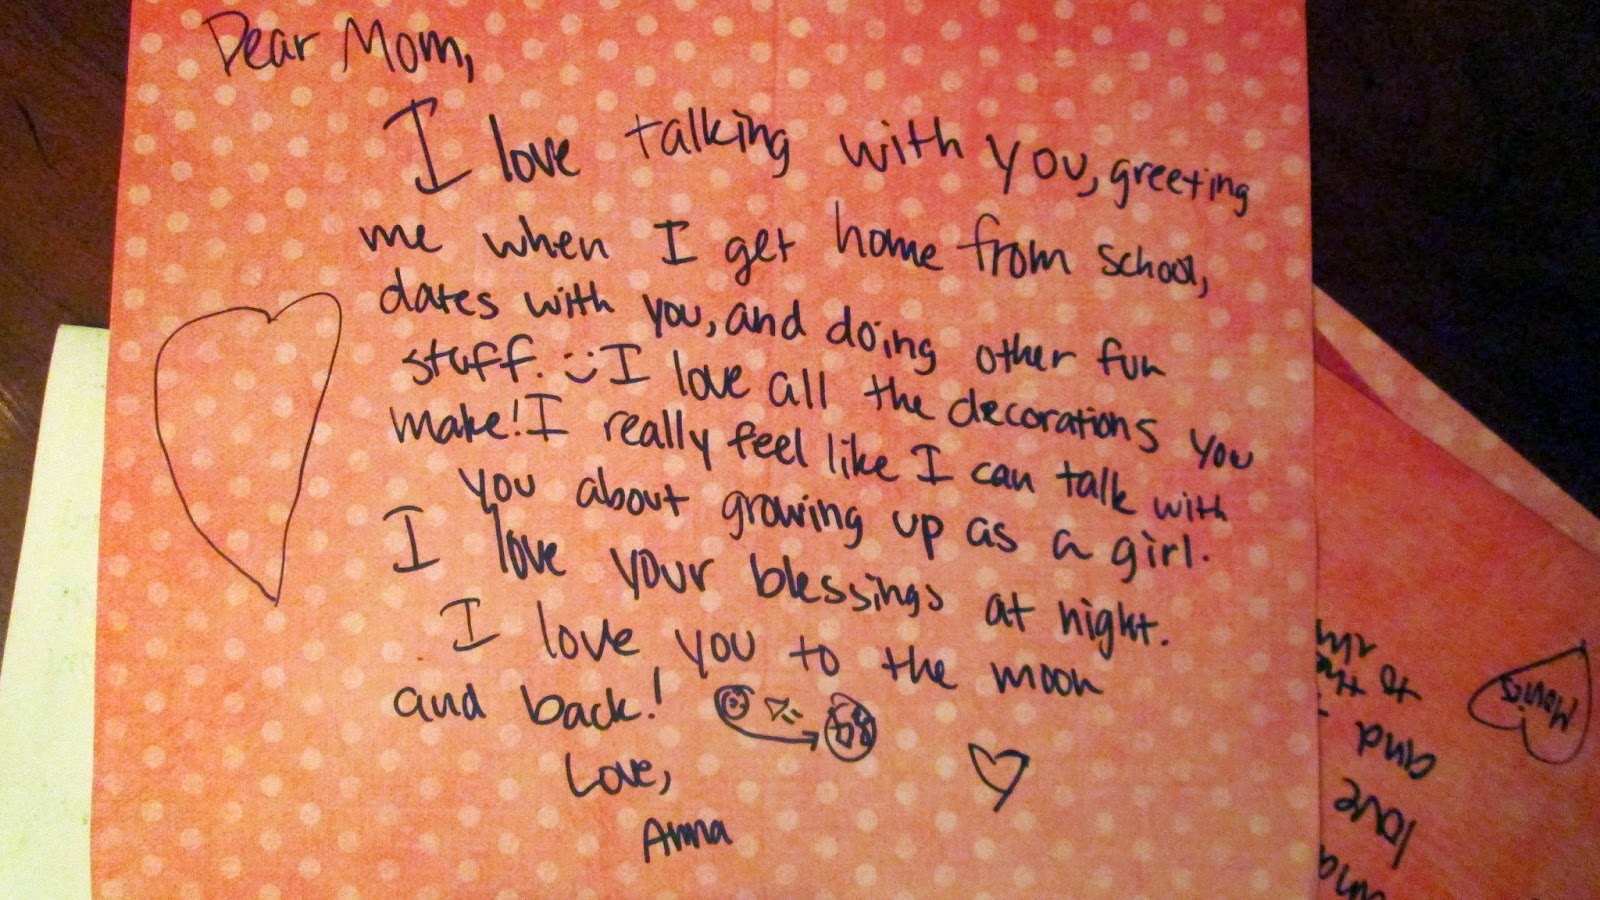 Dear Mom,
I love talking with you, greeting
me when I get home from school,
dates with you, and doing other fun
stuff. :) I love all the decorations you
make! I really feel like I can talk with
you about growing up as a girl.
I love your blessings at night.
I love you to the moon
and back!
Love,
Anna
Movies
and
love